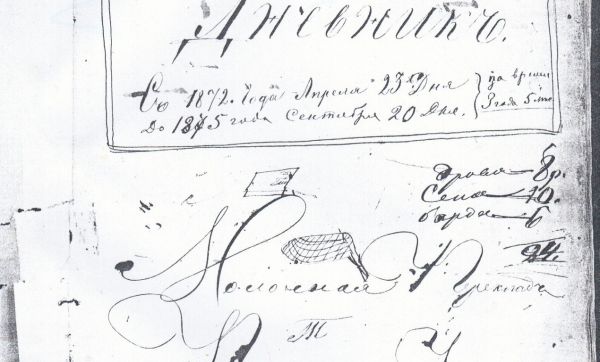 Дневникъ.
Съ 1872. Года Апреля 23 Дня
До 1875 года Сентября 20 Дня.
за время
3 года 5 ме
дрова 8 р.
Сена 10.
барда 6
24.
Молочная